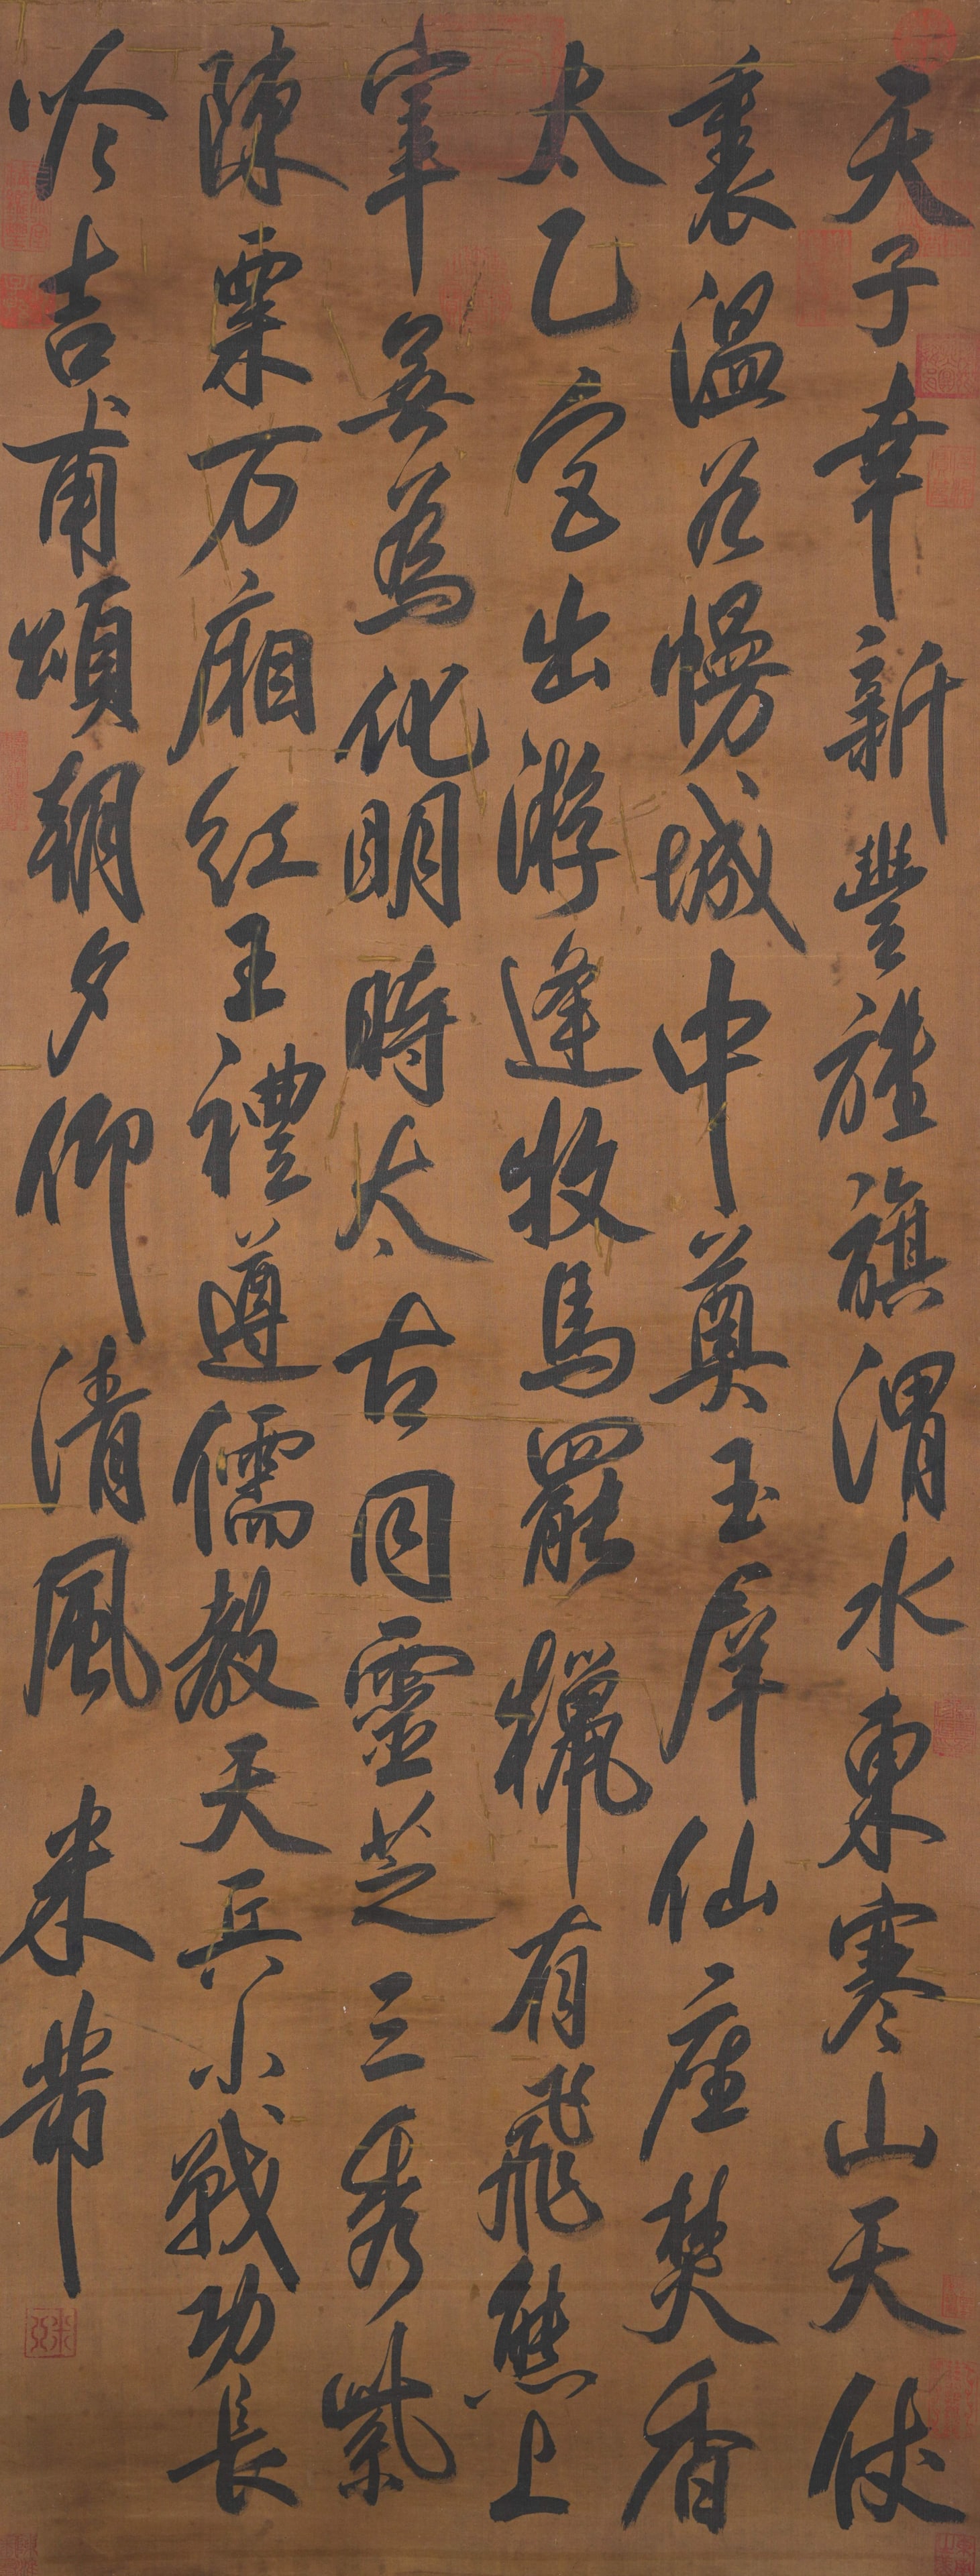 天子幸新豐旌旗渭水東寒山天仗
裏溫谷幔城中奠玉群仙座焚香
太乙宮出游逢牧馬罷獵有飛熊上
宰無為化明時太古同靈芝三秀紫
陳粟万廂紅王禮遵儒教天兵小戰功長
吟吉甫頌朝夕仰清風 米芾